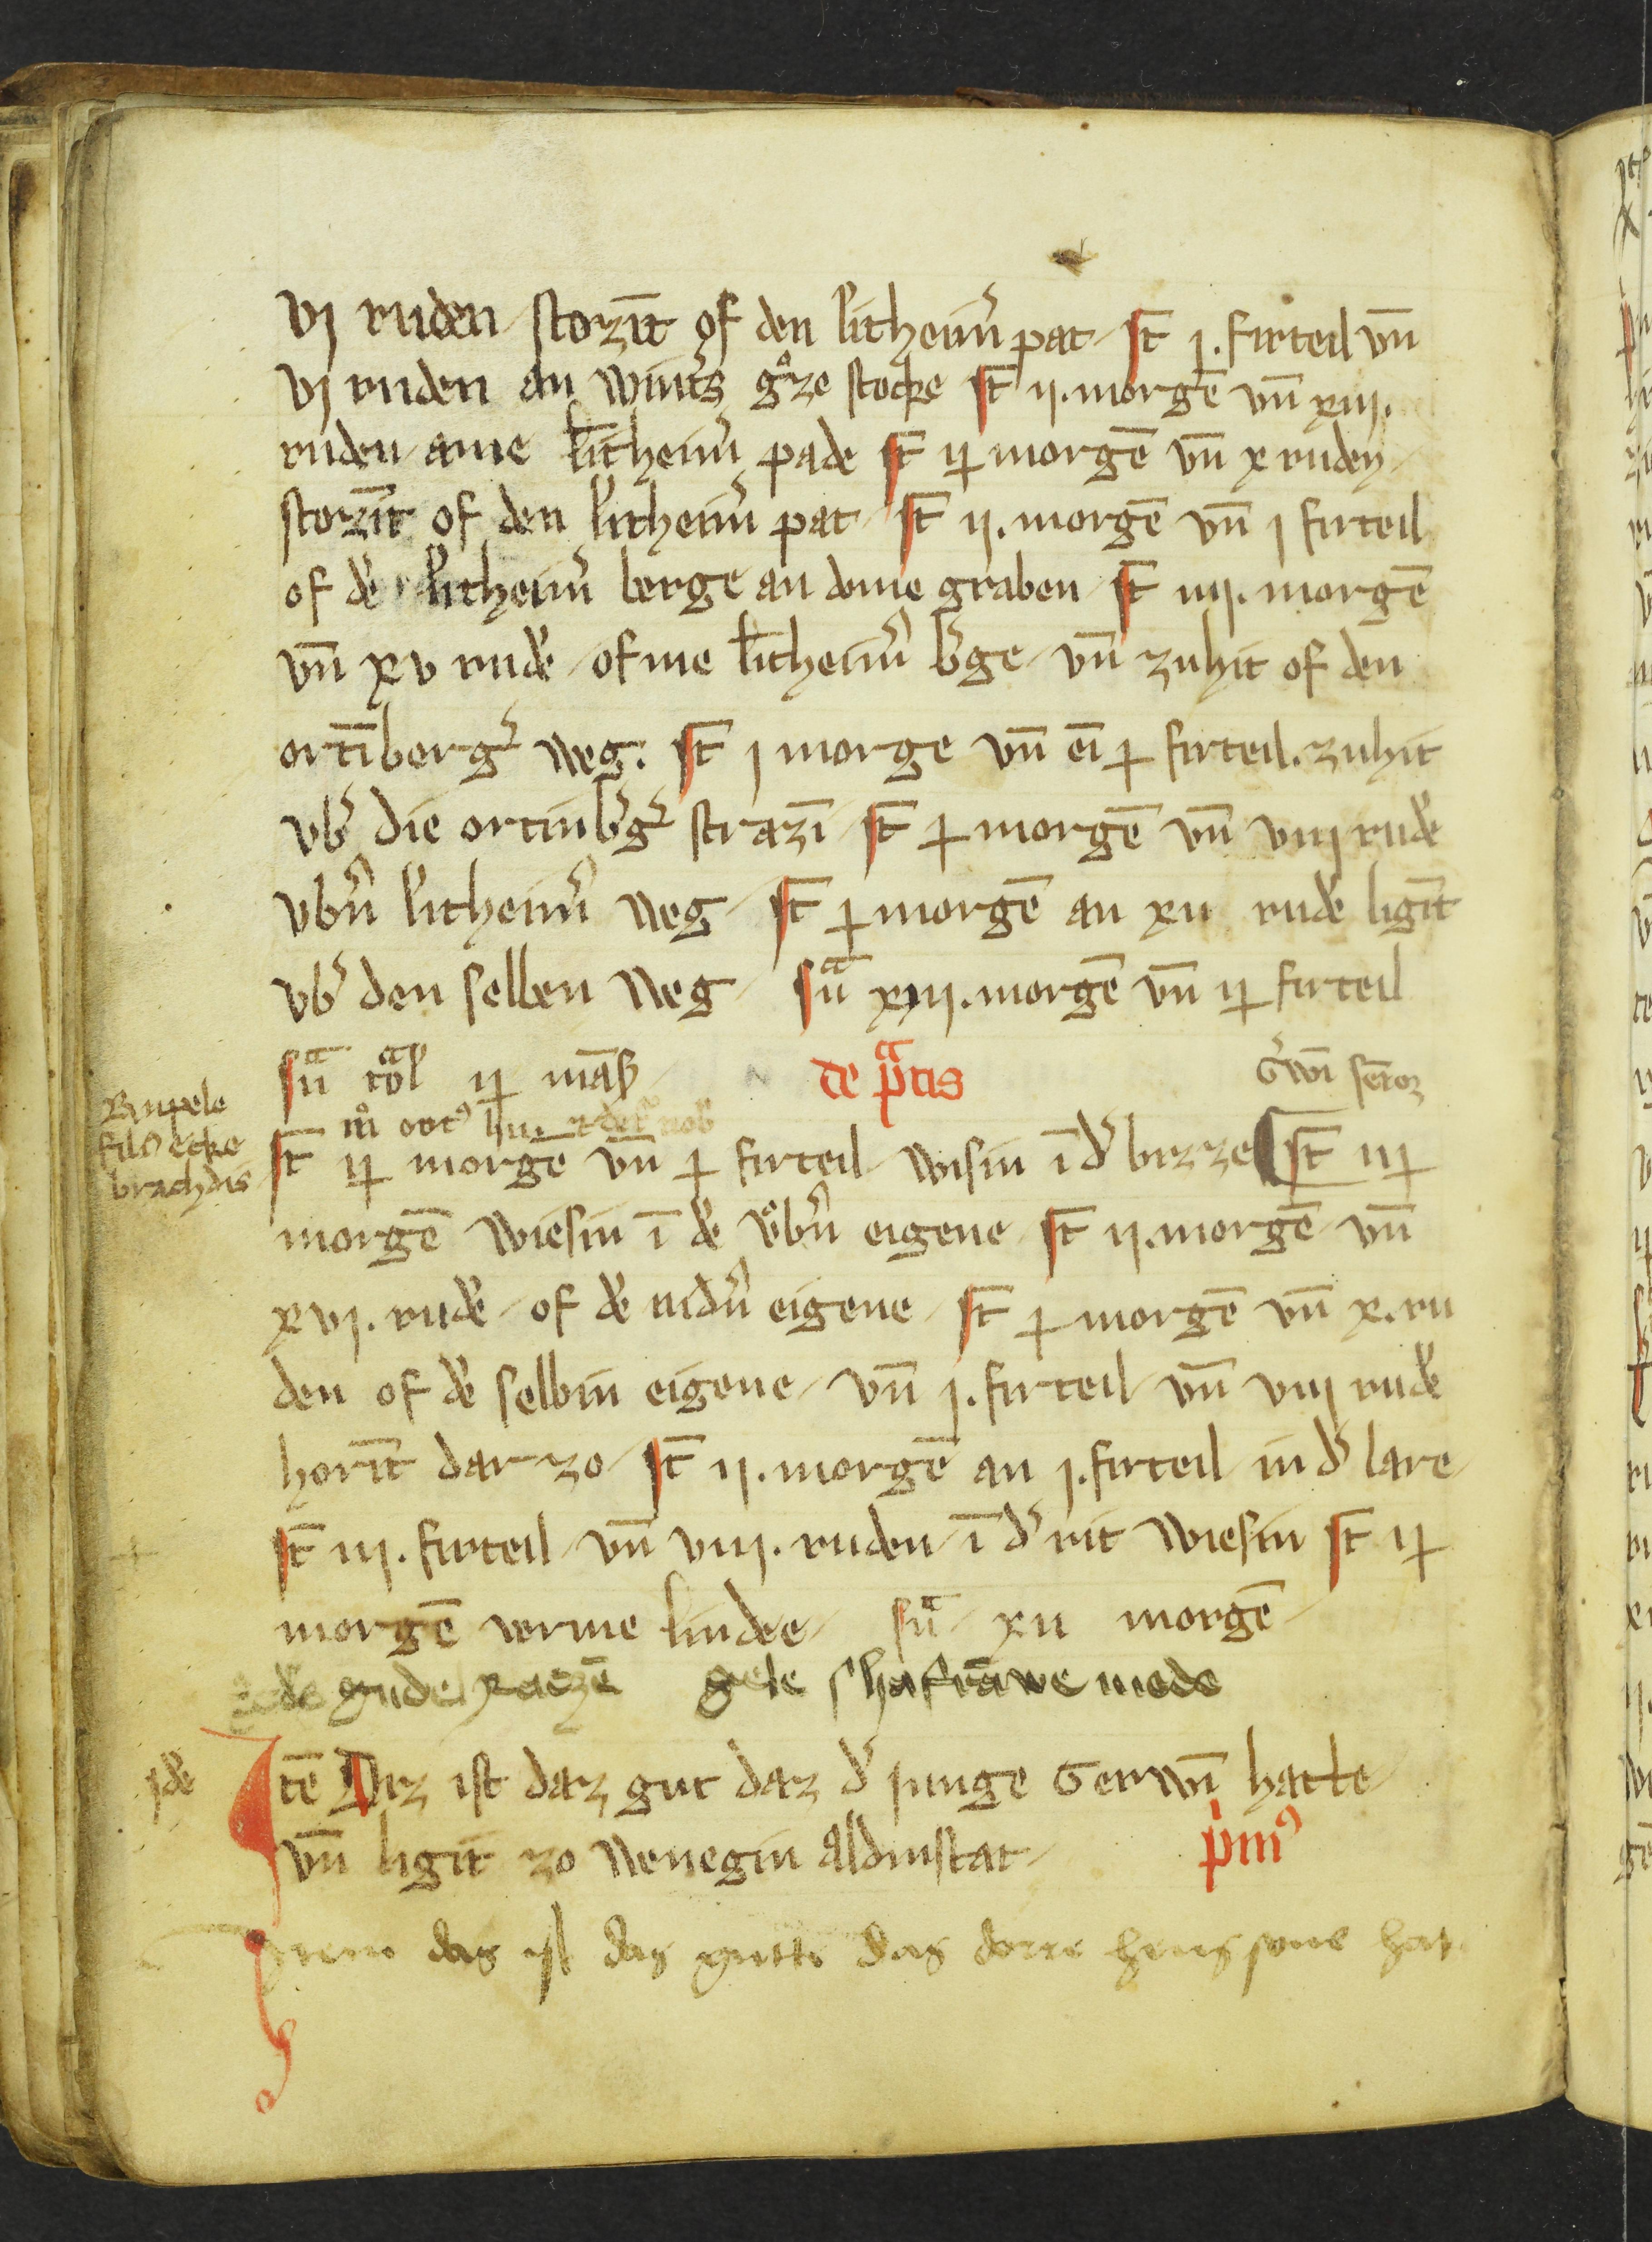 vj ruden storzīt of den litheim̄ pat st̄ j. firteil vn̄
vj ruden an wint̄s gͦze stocke st̄ ij. morgē vn̄ xiij.
ruden ame litheim̄ pade st̄ ij morgē vn̄ x ruden
storzīt of den litheim̄ pat st̄ ij. morgē vn̄ j firteil
of dē litheim̄ berge an deme graben st̄ iiij. morgē
vn̄ xv rudē ofme litheim̄ b̄ge vn̄ zuhit of den
ortībergͬ weg. st̄ j morge vn̄ eī firteil. zuhit
vb̄ die ortinb̄gͬ strazī st̄ morgē vn̄ viij rudē
vbn̄ litheim̄ weg st̄ morgē an xij rudē ligīt
vb̄ den selben weg sūᵃ xiij. morgē vn̄ ij firteil
sūᵃ tōl ij māſ de pᵃtis Ḡwī
Rupele
fili ecke
brachdis
st̄ ij morgē vn̄ firteil wisin ī d̄ bizze st̄ iij
morgē wiesin ī dē vͦbn̄ eigene st̄ ij. morgē vn̄
xvj. rudē of dē nidn̄ eigene st̄ morgē vn̄ x. ru
den of dē selbin eigene vn̄ j. firteil vn̄ viij rudē
horīt dar zo st̄ ij. morgē an j. firteil in d̄ lare
st̄ iij. firteil vn̄ viij. ruden ī d̄ rit wiesin st̄ ij
morgē verme linden sūᵃ xij morgē
gele
jdē
Jtē Diz ist daz gut daz d̄ junge Gerwī hatte
vn̄ ligit zo wenegin aldinstat pm̄⁹
Item das ist das gutte das dorre hens sone hat